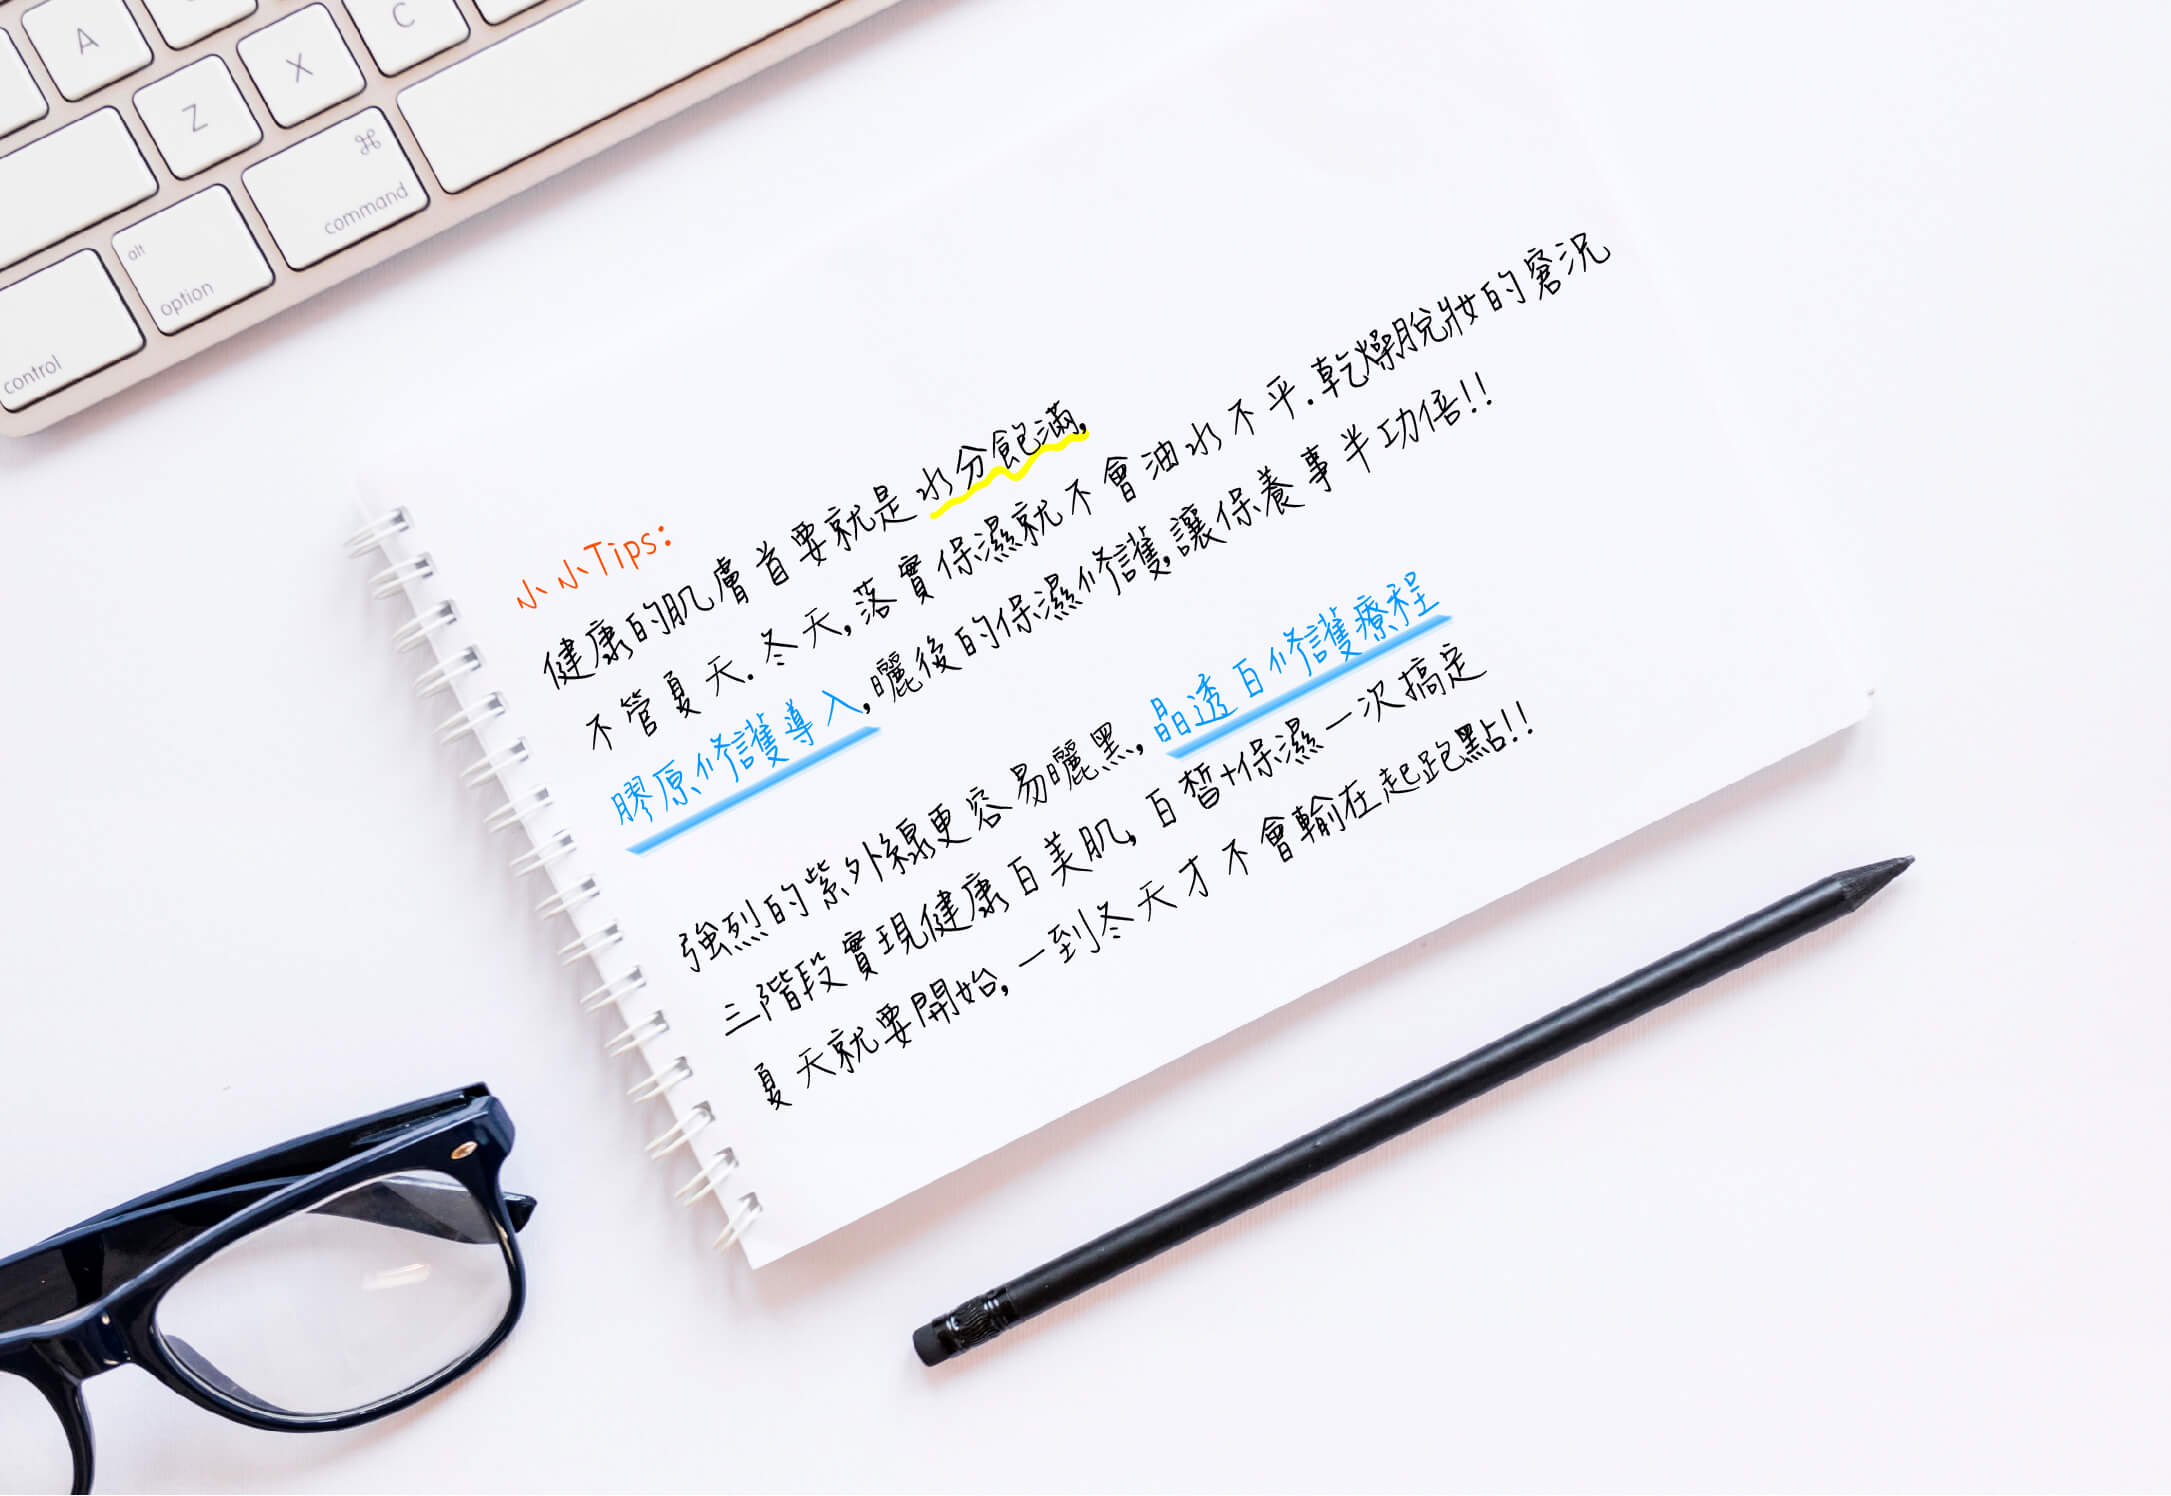 A
C
Z
X
⌘
command
alt
option
control
小小Tips:
健康的肌膚首要就是水分飽滿,
不管夏天.冬天,落實保濕就不會油水不平.乾燥脫妝的窘況
膠原修護導入,曬後的保濕修護,讓保養事半功倍!!
強烈的紫外線更容易曬黑,晶透白修護療程
三階段實現健康白美肌,白皙+保濕一次搞定
夏天就要開始,一到冬天才不會輸在起跑點!!